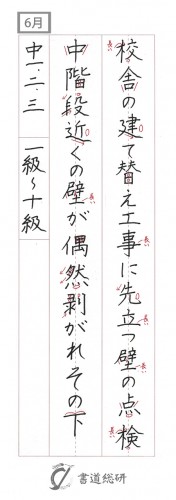 6月
校舎の建て替え工事に先立つ壁の点検
中階段近くの壁が偶然剥がれその下
中一・二・三 一級〜十級
書道総研